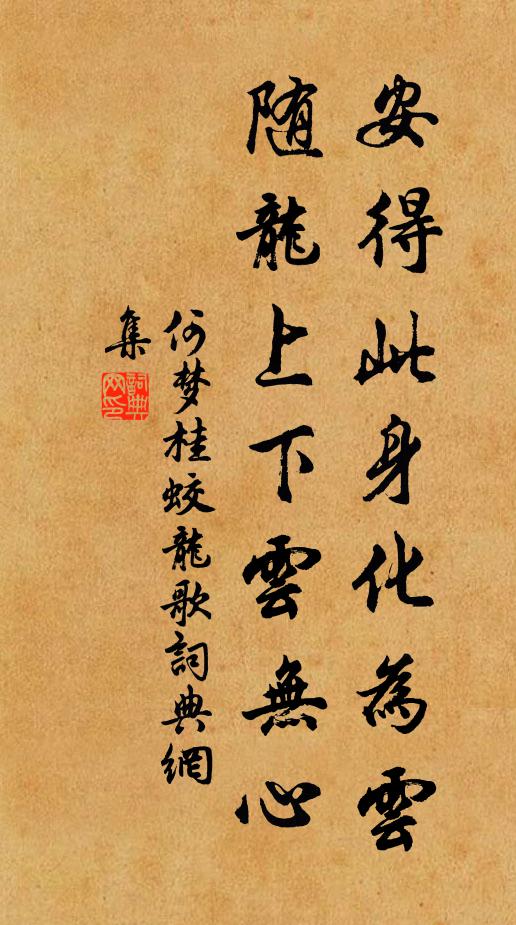 安得此身化為雲
随龍上下雲無心
何梦桂蛟龍歌詞典網
集
詞典
网印